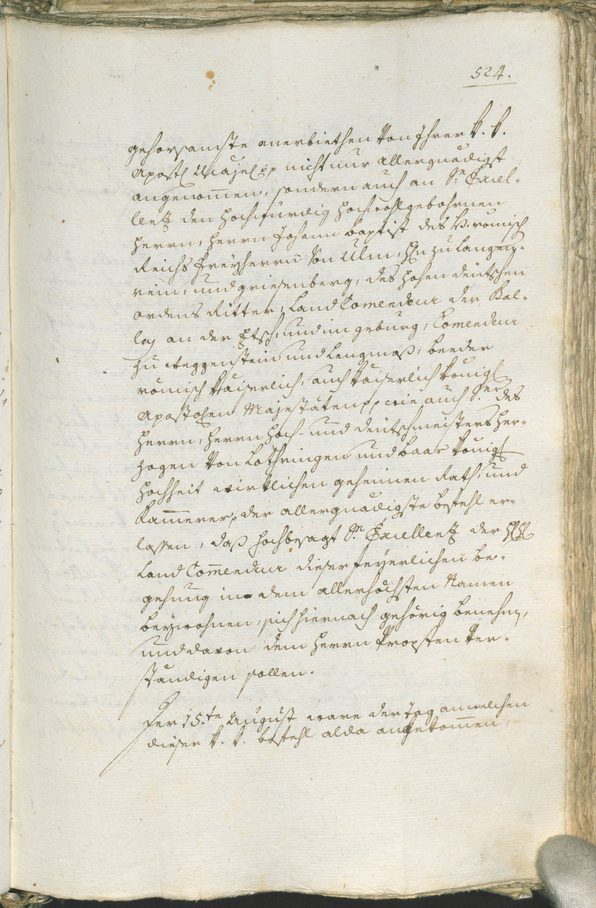 524.
gehorsamste anerbiethen von Ihrer K. K.
Apostl Majest pp nicht nur allergnädigst
angenommen, sondern auch an Sr Excel-
lentz den hochwürdig hochwohlgebohrnen
Herrn, Herrn Johann baptist des h. römisch
Reichs freyherrn von Ulm, Hn zu Langen-
rein, und griesenberg, des hohen deutschen
ordens Ritter, Land Comendeur der Bal-
ley an der Etsch, und im geburg, Comendeur
zu weggenstein und Lengmoß, beeder
römisch Kaiserlich, auch Kaiserlich Königl
Apostolen Majestäten pp wie auch Sr des
herrn, herrn hoch- und deutschmeisters her-
zogen von Lothringen und baar Königl
hochheit wirklichen geheimen Rath, und
Kammerer, der allergnädigste befehl er-
lassen, daß hochbesagt Sr Excellentz der
Land Comendeur dieser feyerlichen be-
gehung in dem allerhöchsten Namen
beywohnen, sich hiernach gehörig benehmen,
und davon dem herrn Propsten ver-
ständigen sollen.
Der 15.te August ware der tag an welchen
dieser K. K. befehl alda angekommen,